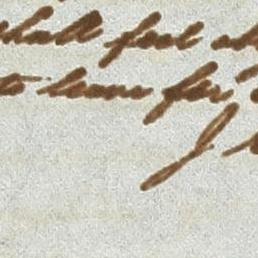 shall feel
to leave for